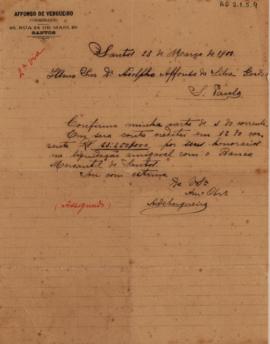 AG 2.1.5.9
AFFONSO DE VERGUEIRO
COMMISSARIO
RUA 24 DE MAIO,
SANTOS
2ª via
Santos 23 de Março de 1900.
Illmo Snr Dr Adolpho Affonso da Silva Gordo
S. Paulo
Confirmo minha carta de 5 do corrente.
Em sua conta creditei em 12 do cor
rente Rs por seus honorarios
na liquidação amigavel com o Banco
Mercantil de Santos.
Sou com estima
De VSª
Amº Obrº
AdeVergueiro
(Assignado)